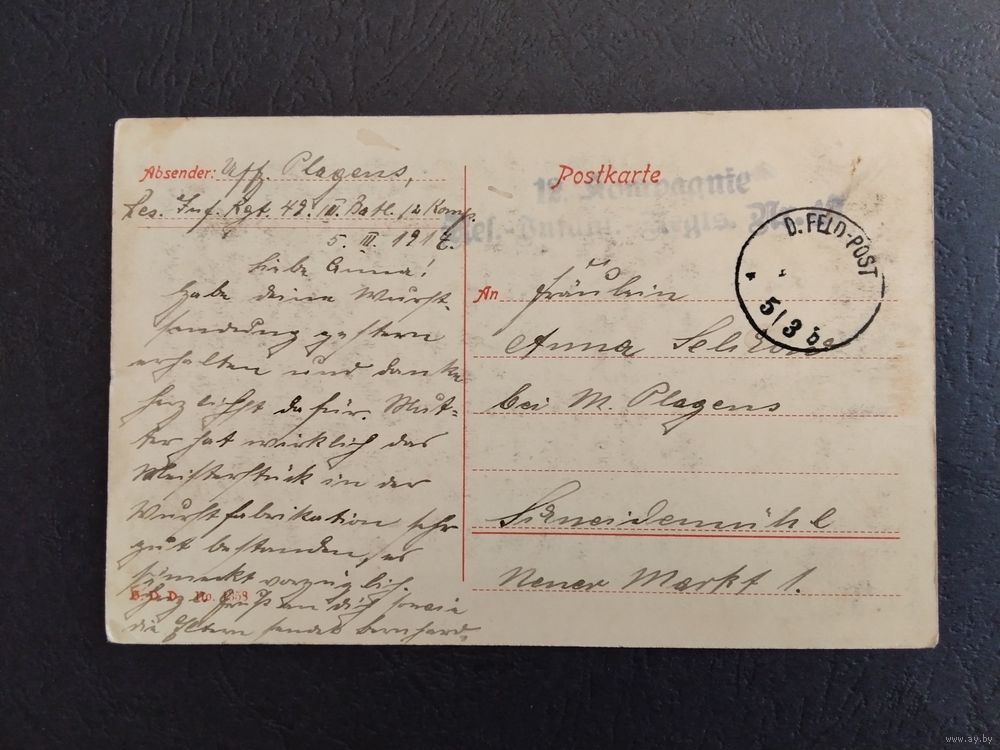 Absender: Uff. Plagens,
Res. Inf. Rgt. 49. III. Batl. 12 Komp.
5. III. 1917.
Liebe Anna!
Habe deine Wurst-
sendung gestern
erhalten und danke
herzlichst dafür. Mut-
ter hat wirklich das
Meisterstück in der
Wurstfabrikation sehr
gut bestanden, es
schmeckt vorzüglich.
Grüßen dich sowie
die Eltern sendet Bernhard.
B. D. D. No.
Postkarte
12. Kompagnie
Res.-Infant. Regts. No. 49
D. FELD-POST
5/3
An Fräulein
Anna
bei M. Plagens
Schneidemühl
Neuer Markt 1.
www.ay.by